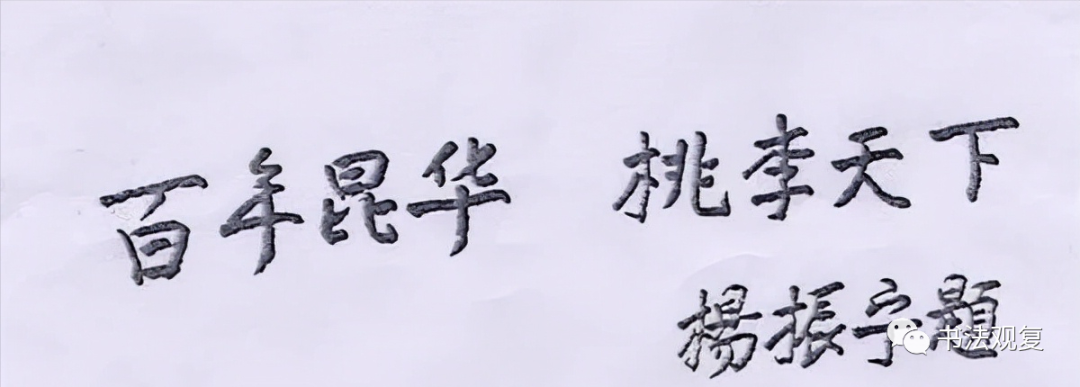 百年昆华 桃李天下
楊振宁题
书法观复